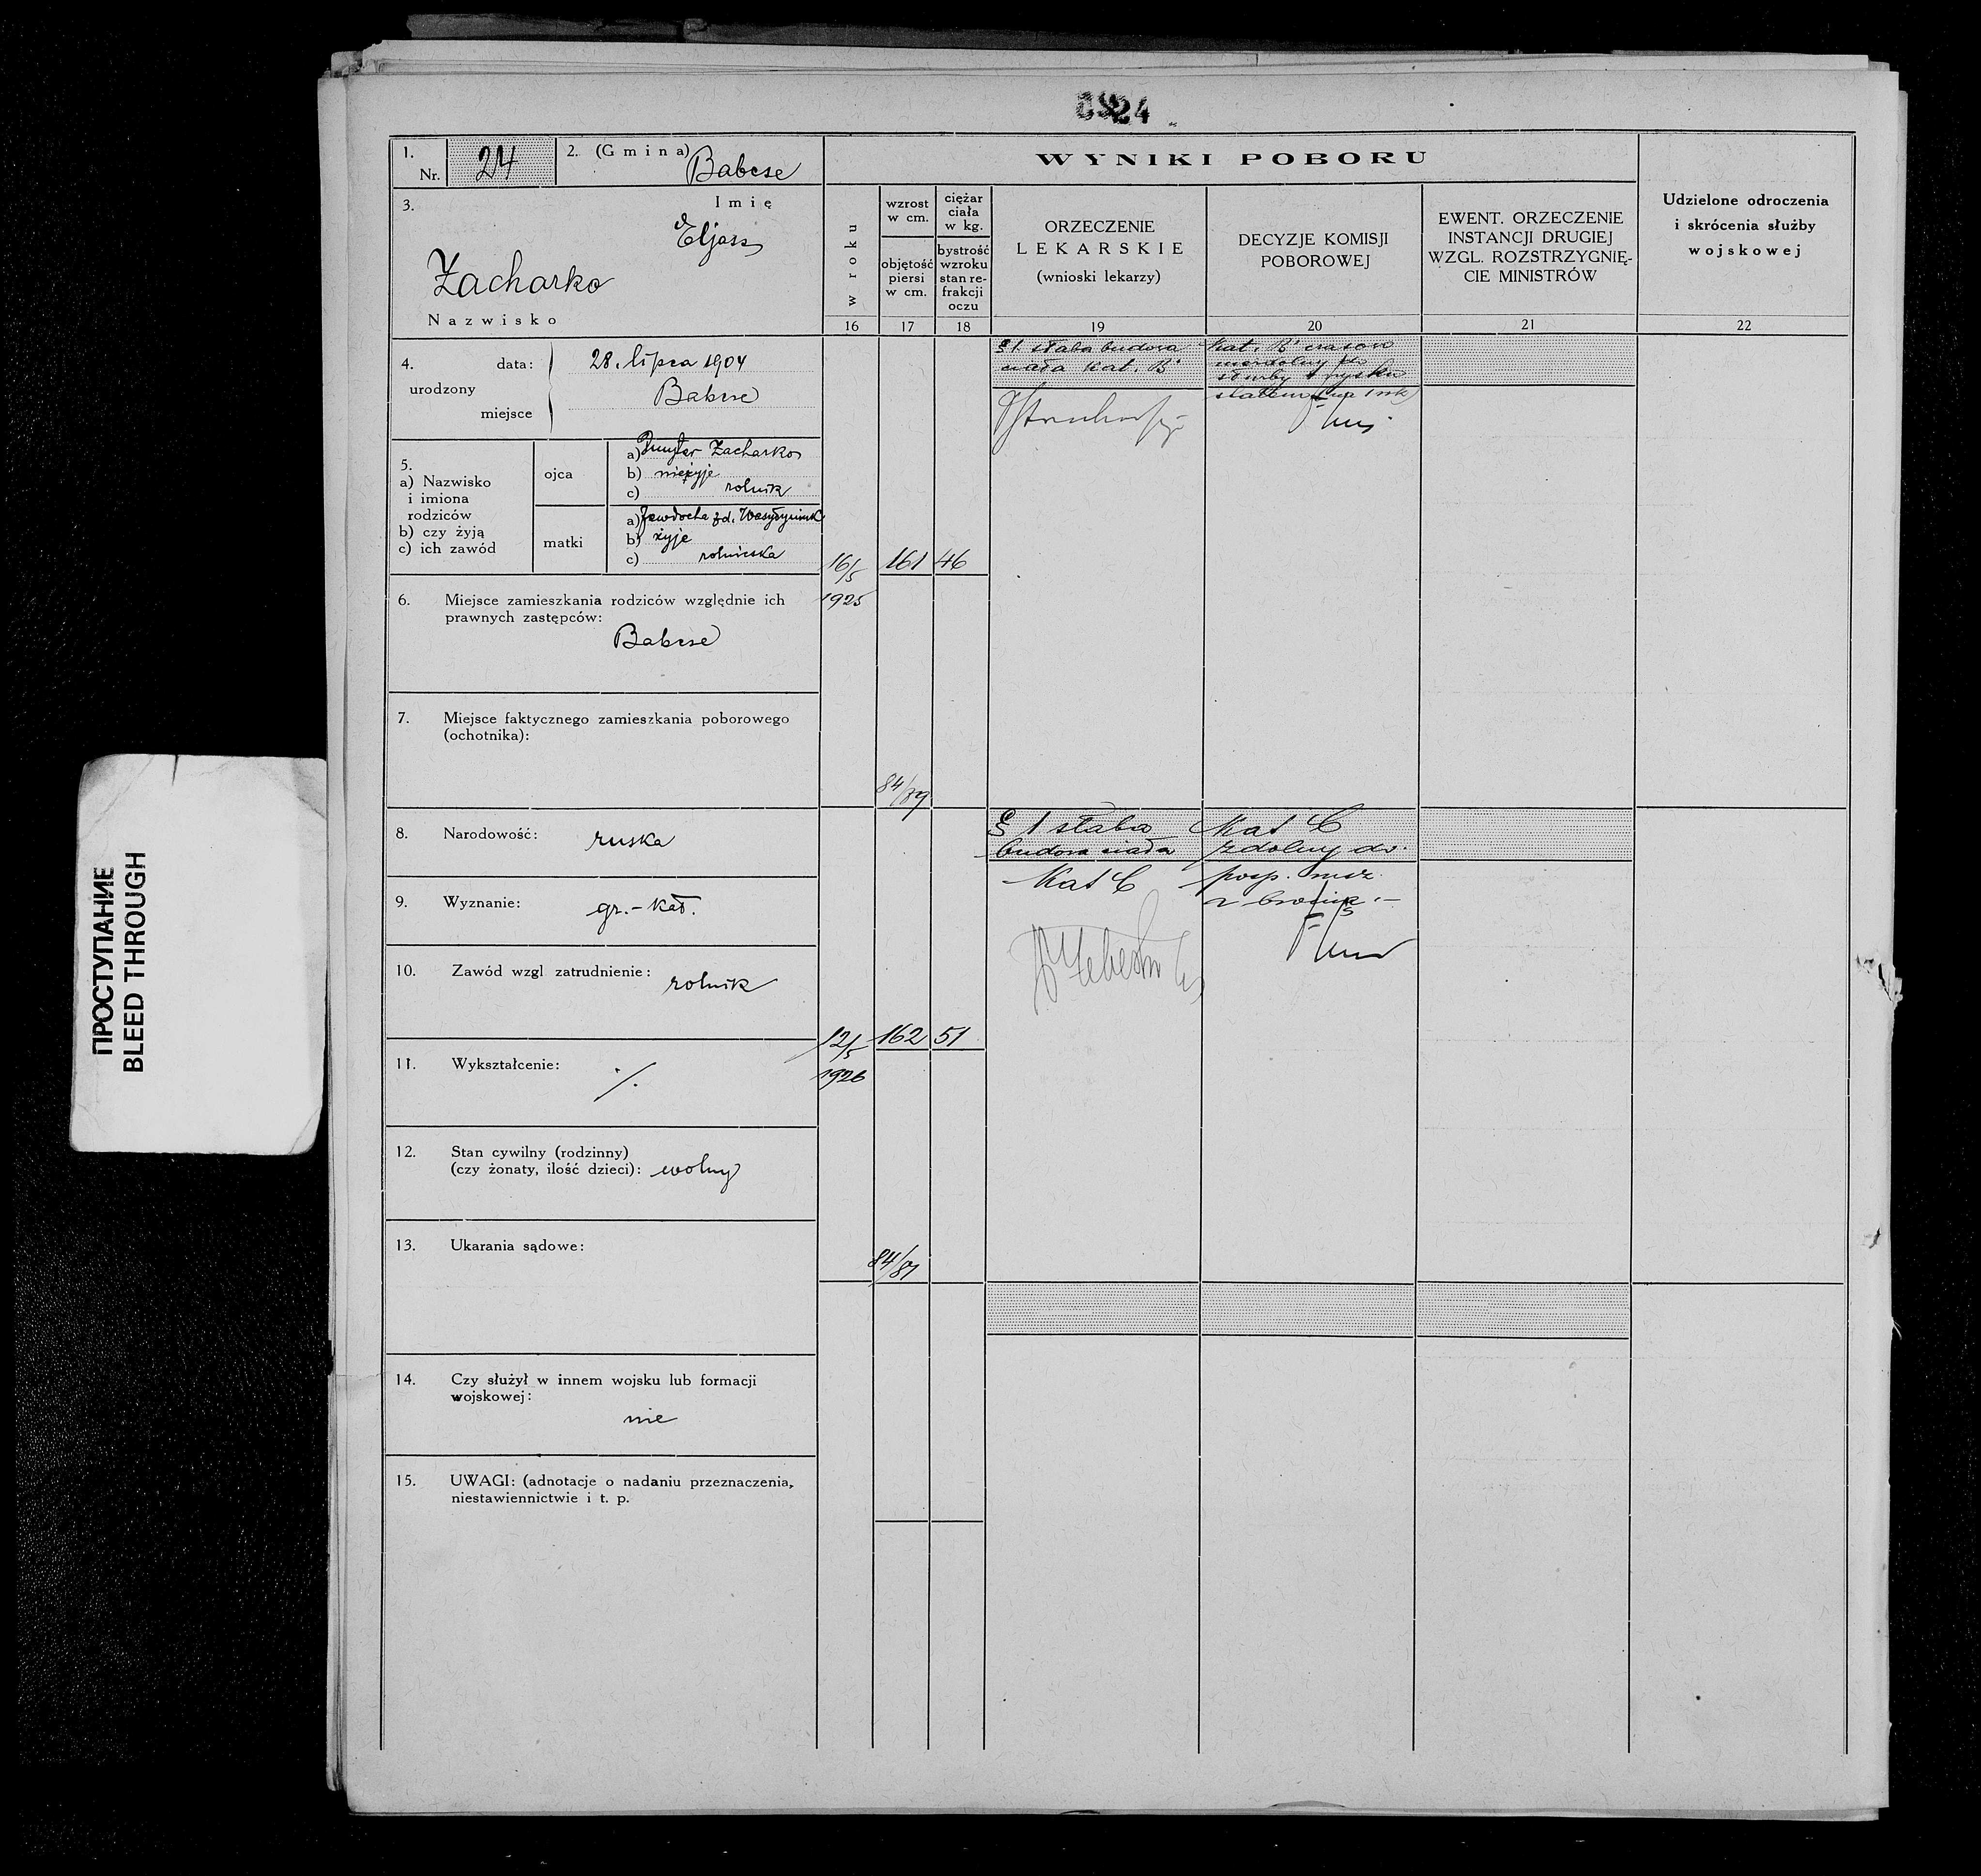 24
1. Nr. 24
2. (Gmina) Babcse
3. Imię
Eljasz
Zacharko
Nazwisko
4. urodzony
data: 28. lipca 1904
miejsce Babcse
5.
a) Nazwisko
i imiona
rodziców
b) czy żyją
c) ich zawód
ojca
a) Dmyter Zacharko
b) nieżyje
c) rolnik
matki
a) Jewdocha zd.
b) żyje
c) rolniczka
6. Miejsce zamieszkania rodziców względnie ich
prawnych zastępców:
Babcse
7. Miejsce faktycznego zamieszkania poborowego
(ochotnika):
8. Narodowość: ruska
9. Wyznanie: gr.-kat.
10. Zawód wzgl zatrudnienie: rolnik
11. Wykształcenie: ./.
12. Stan cywilny (rodzinny)
(czy żonaty, ilość dzieci): wolny
13. Ukarania sądowe:
14. Czy służył w innem wojsku lub formacji
wojskowej:
nie
15. UWAGI: (adnotacje o nadaniu przeznaczenia,
niestawiennictwie i t. p.
WYNIKI POBORU
w roku
16
wzrost
w cm.
objętość
piersi
w cm.
17
ciężar
ciała
w kg.
bystrość
wzroku
stan re-
frakcji
oczu
18
ORZECZENIE
LEKARSKIE
(wnioski lekarzy)
19
DECYZJE KOMISJI
POBOROWEJ
20
EWENT. ORZECZENIE
INSTANCJI DRUGIEJ
WZGL. ROZSTRZYGNIĘ-
CIE MINISTRÓW
21
Udzielone odroczenia
i skrócenia służby
wojskowej
22
16/5
1925
161
46
84/89
§ 1 słaba budowa
ciała Kat. B
Kat. B czasowo
niezdolny do
służby w wojsku
stałem (na 1 rok)
12/5
1926
162
51
84/87
§ 1 słaba
budowa ciała
Kat C
Kat C
zdolny do
posp. rusz.
z bronią.—
ПРОСТУПАНИЕ
BLEED THROUGH